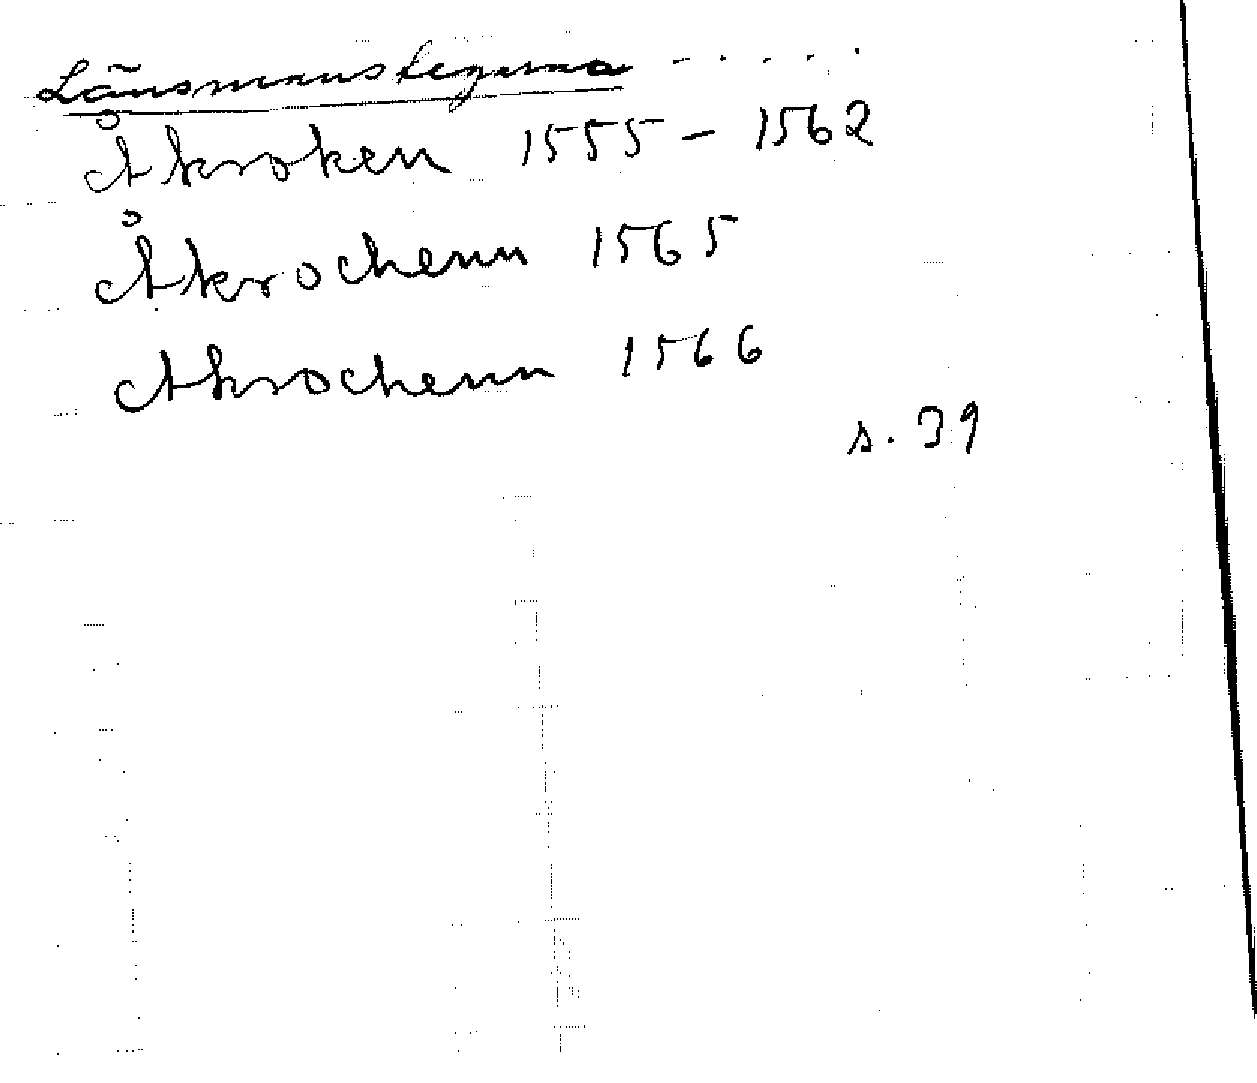 Länsmanstegarna - . . . . .
Åkroken 1555 - 1562
Åkrochenn 1565
Akrochenn 1566
s. 39